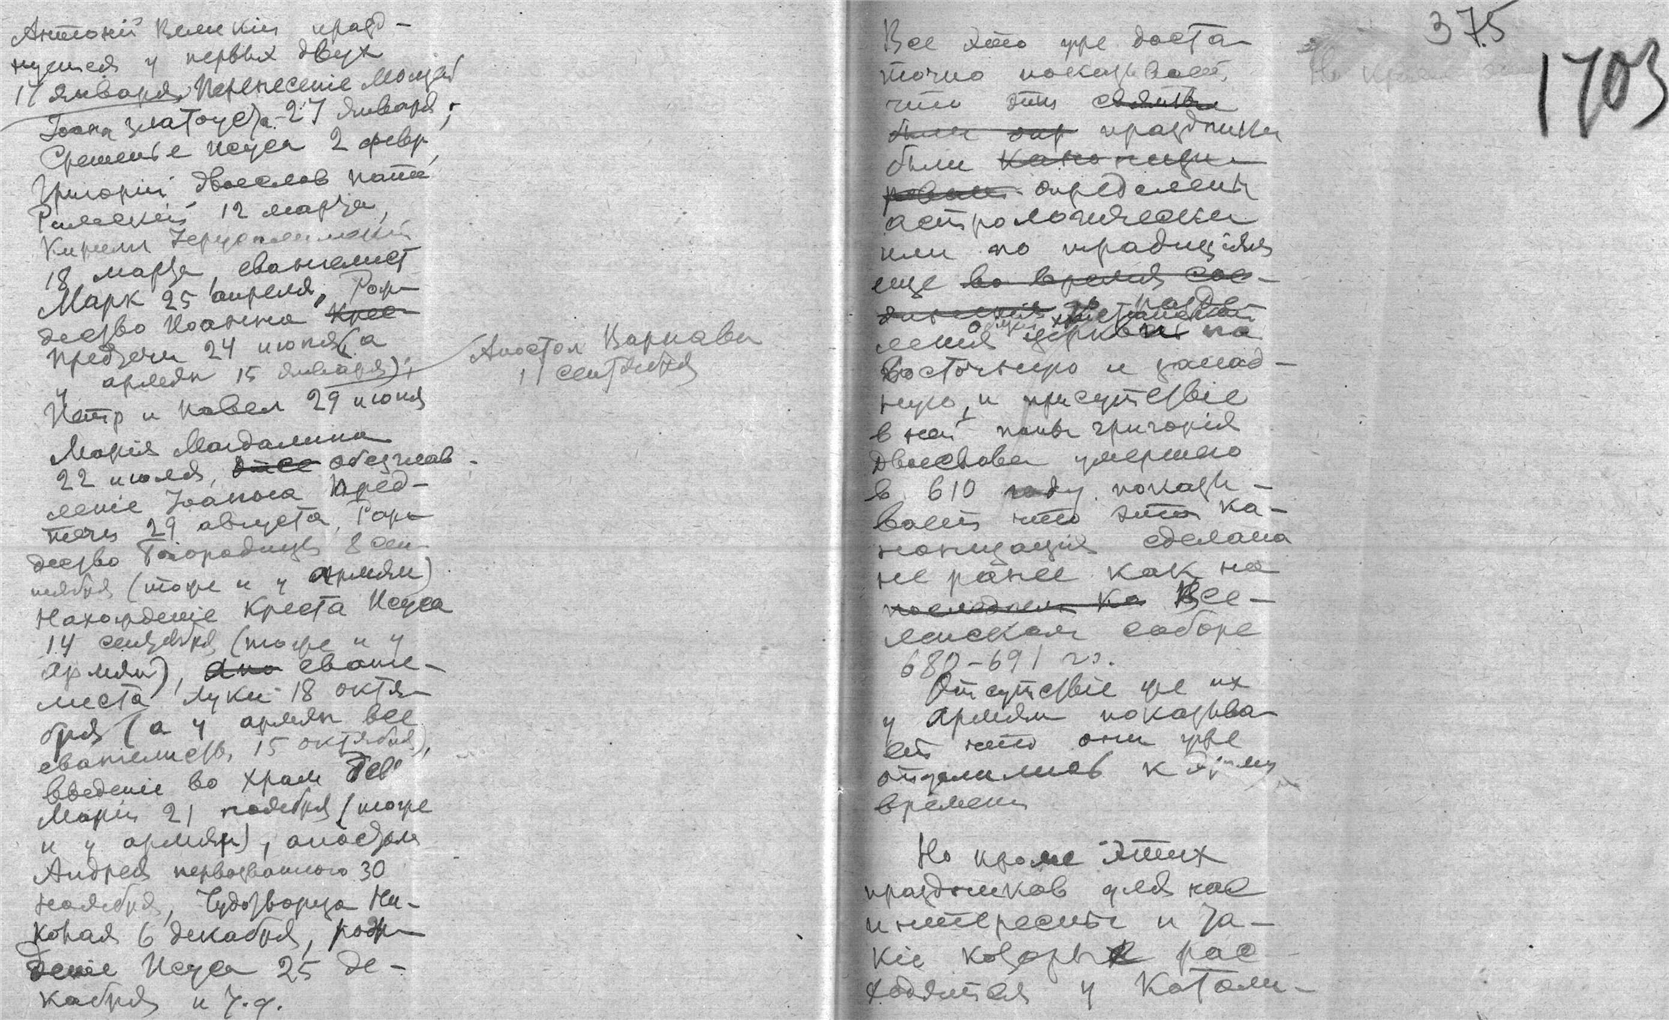 Антоній Великій празд-
нуется у первых двух
17 января, Перенесеніе Мощей
Іоана Златоуста 27 января;
Сретенье Исуса 2 февр,
Григорій Двоеслов папа
Римскій 12 марта,
Кирилл Іерусалимскій
18 марта, евангелист
Марк 25 апреля, Рож-
дество Иоанна Крес-
Предтечи 24 июня (а
у армян 15 января);
Апостол Варнава
11 сентября
Петр и Павел 29 июня
Марія Магдалина
22 июля, обезглав-
леніе Іоанна Пред-
течи 29 августа, Рож-
дество Богородицы 8 сен-
тября (тоже и у армян)
Нахожденіе Креста Исуса
14 сентября (тоже и у
армян), апо еванге-
листа Луки 18 октя-
бря (а у армян все
евангелисты 15 октября),
Введеніе во храм Дев
Маріи 21 ноября (тоже
и у армян), апостола
Андрея первозванного 30
ноября, Чудотворца Ни-
колая 6 декабря, рож-
деніе Исуса 25 де-
кабря и т.д.
375
1703
Все это уже доста-
точно показывает,
что эти святые
были праздники
были канонизи-
рованы определены
астрологически
или по традиціям
еще во время сое-
диненія разде-
ления церкви на
Восточную и запад-
ную, и присутствіе
в ней папы Григорія
Двоеслова умершего
в 610 году показы-
вает что эта ка-
нонизація сделана
не ранее как на
последнем Все-
ленском соборе
680-691 гг.
Отсутствіе же их
у армян показыва-
ет что они уже
отделились к этому
времени
Но кроме этих
праздников для нас
интересны и та-
кіе которые рас-
ходятся у Католи-